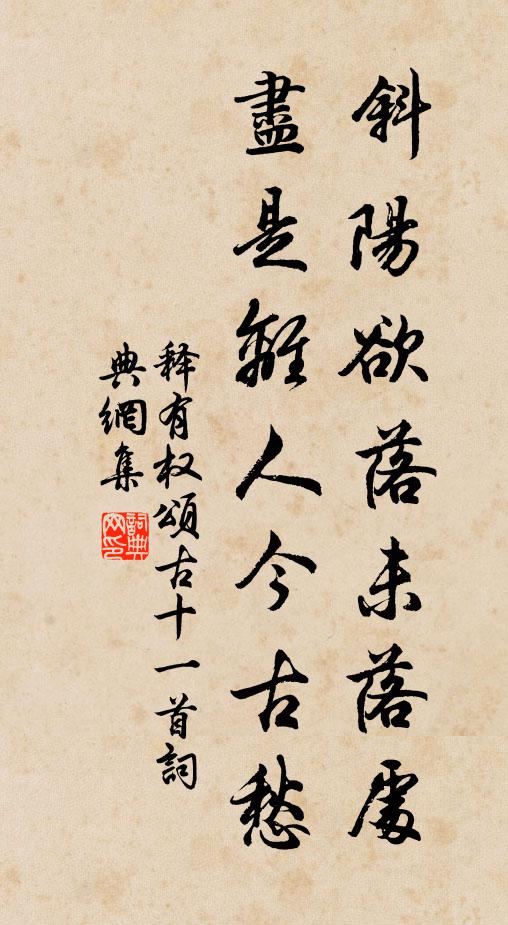 斜陽欲落未落處
盡是離人今古愁
释有权頌古十一首詞
典網集
詞典
网印